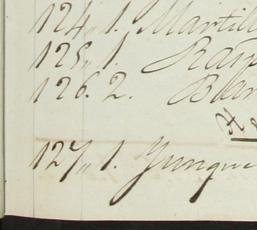 124„ 1. Martill
125„ 1. Rasp
126. 2. Blan
127„ 1. Yunque